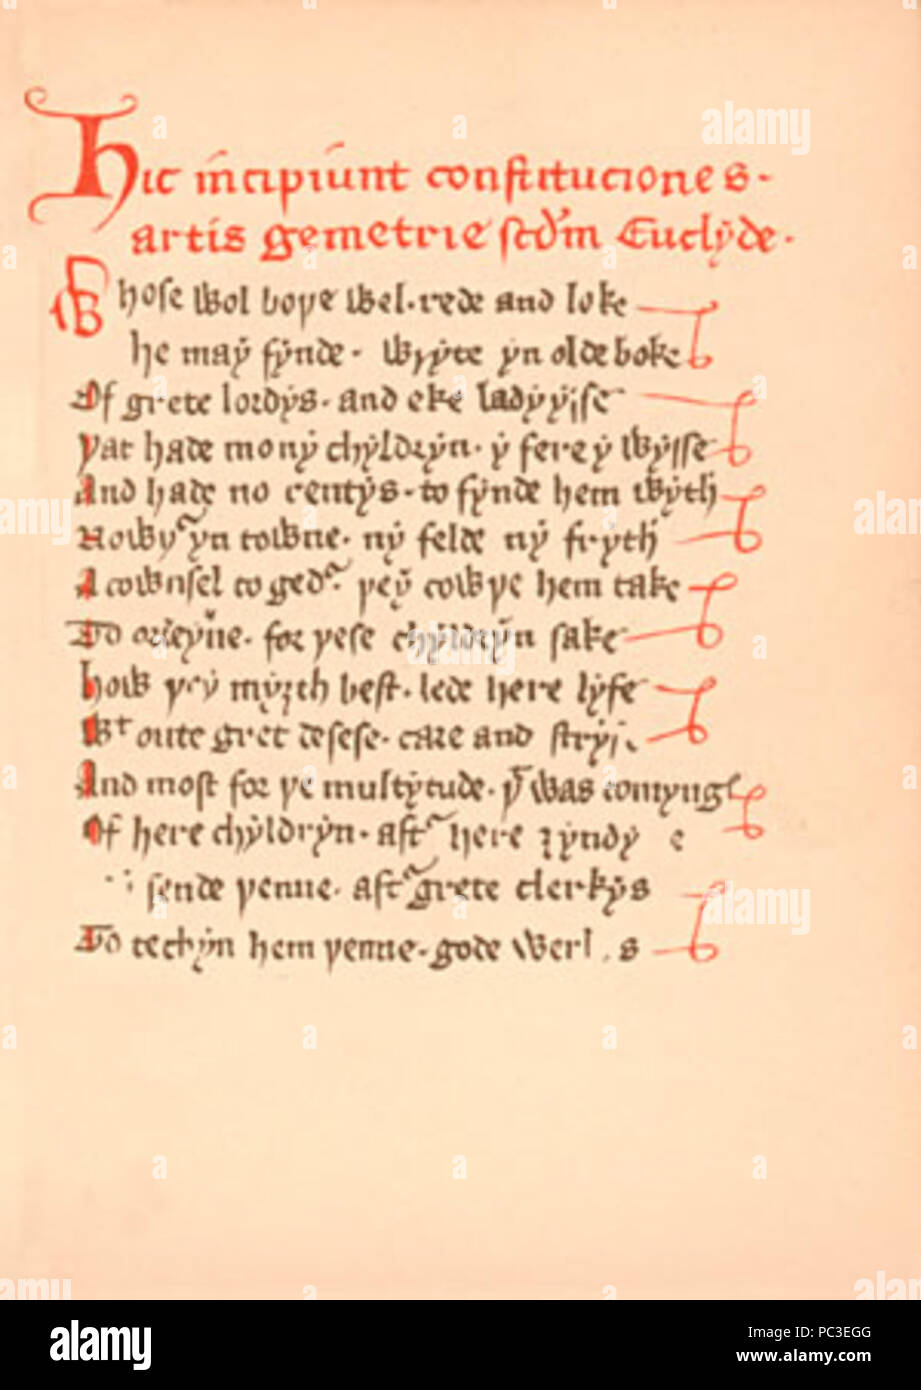 Hic incipiunt constituciones
artis gemetrie scdm Euclyde.
Whose wol boþe wel rede and loke
he may fynde wryte yn olde boke
Of grete lordys. and eke ladyysse
þat hade mony chyldryn. y fere y wysse
And hade no rentys. to fynde hem wyth
Nowþr yn towne. ny felde ny fryth
A cownsel to gedr þey cowþe hem take
To ordeyne. for þese chyldryn sake
how þey myȝth best. lede here lyfe
Wt oute gret desese. care and
And most for þe multytude. þt was comyng
Of here chyldryn. aftr here
sende þenne. aftr grete clerkys
To techyn hem þenne. gode
alamy
alamy
Image ID: PC3EGG
www.alamy.com